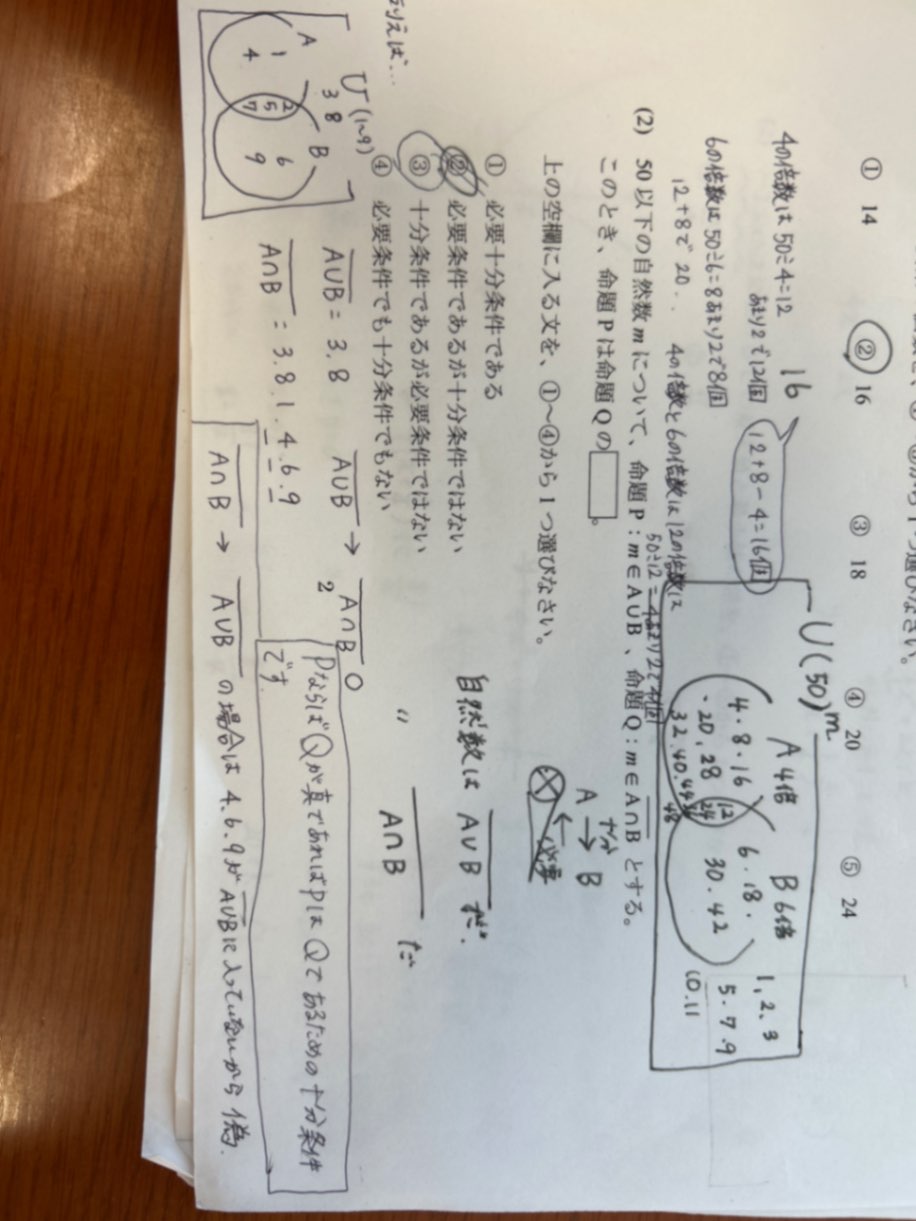 ① 14 ② 16 ③ 18 ④ 20 ⑤ 24
4の倍数は50÷4=12
あまり2で12個
6の倍数は50÷6=8あまり2で8個
12+8で20.
16
12+8-4=16個
4の倍数と6の倍数は12の倍数は
50÷12=4あまり2で4個
U(50)
m
A 4倍 B 6倍
4・8・16
・20,28
32,40,44
12
24
36
48
6・18・
30・42
1,2,3
5・7・9
10.11
(2) 50以下の自然数mについて、命題P:m∈A∪B、命題Q:m∈A∩Bとする。
このとき、命題Pは命題Qの□。
上の空欄に入る文を、①~④から1つ選びなさい。
① 必要十分条件である
② 必要条件であるが十分条件ではない
③ 十分条件であるが必要条件ではない
④ 必要条件でも十分条件でもない
十分
A → B
←
必要
自然数は A∪B だ.
〃 A∩B だ
例えば…
U(1~9)
3 8
A B
1
4
2
5
7
6
9
A∪B = 3.8
A∩B = 3.8.1.4.6.9
A∪B → A∩B ○
2
PならばQが真であればPはQであるための十分条件
です.
A∩B → A∪B の場合は 4.6.9がA∪Bに入っていないから 偽.